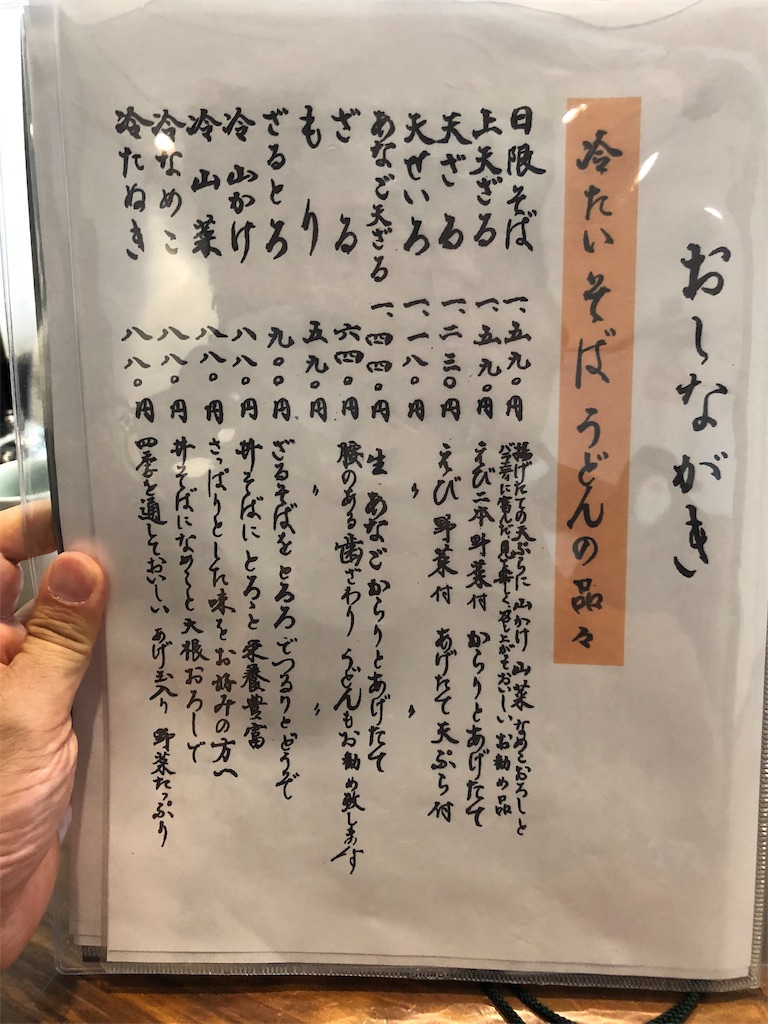 おしながき
冷たいそばうどんの品々
日限そば 一、五九〇円 揚げたての天ぷらに 山かけ 山菜 なめこおろしと
バラエティに富んだ見た目楽しく召し上がっておいしいお勧め品
上天ざる 一、五九〇円 えび二本野菜付 からりとあげたて
天ざる 一、二三〇円 えび 野菜付 あげたて天ぷら付
天せいろ 一、一八〇円 〃 〃
あなご天ざる 一、四四〇円 生あなごからりとあげたて
ざる 六四〇円 腰のある歯ざわり うどんもお勧め致します
もり 五九〇円 〃 〃
ざるとろ 九〇〇円 ざるそばをとろろでつるりとどうぞ
冷山かけ 八八〇円 丼そばにとろろと栄養豊富
冷山菜 八八〇円 さっぱりとした味をお好みの方へ
冷なめこ 八八〇円 丼そばになめこと大根おろしで
冷たぬき 八八〇円 四季を通しておいしい あげ玉入り 野菜たっぷり